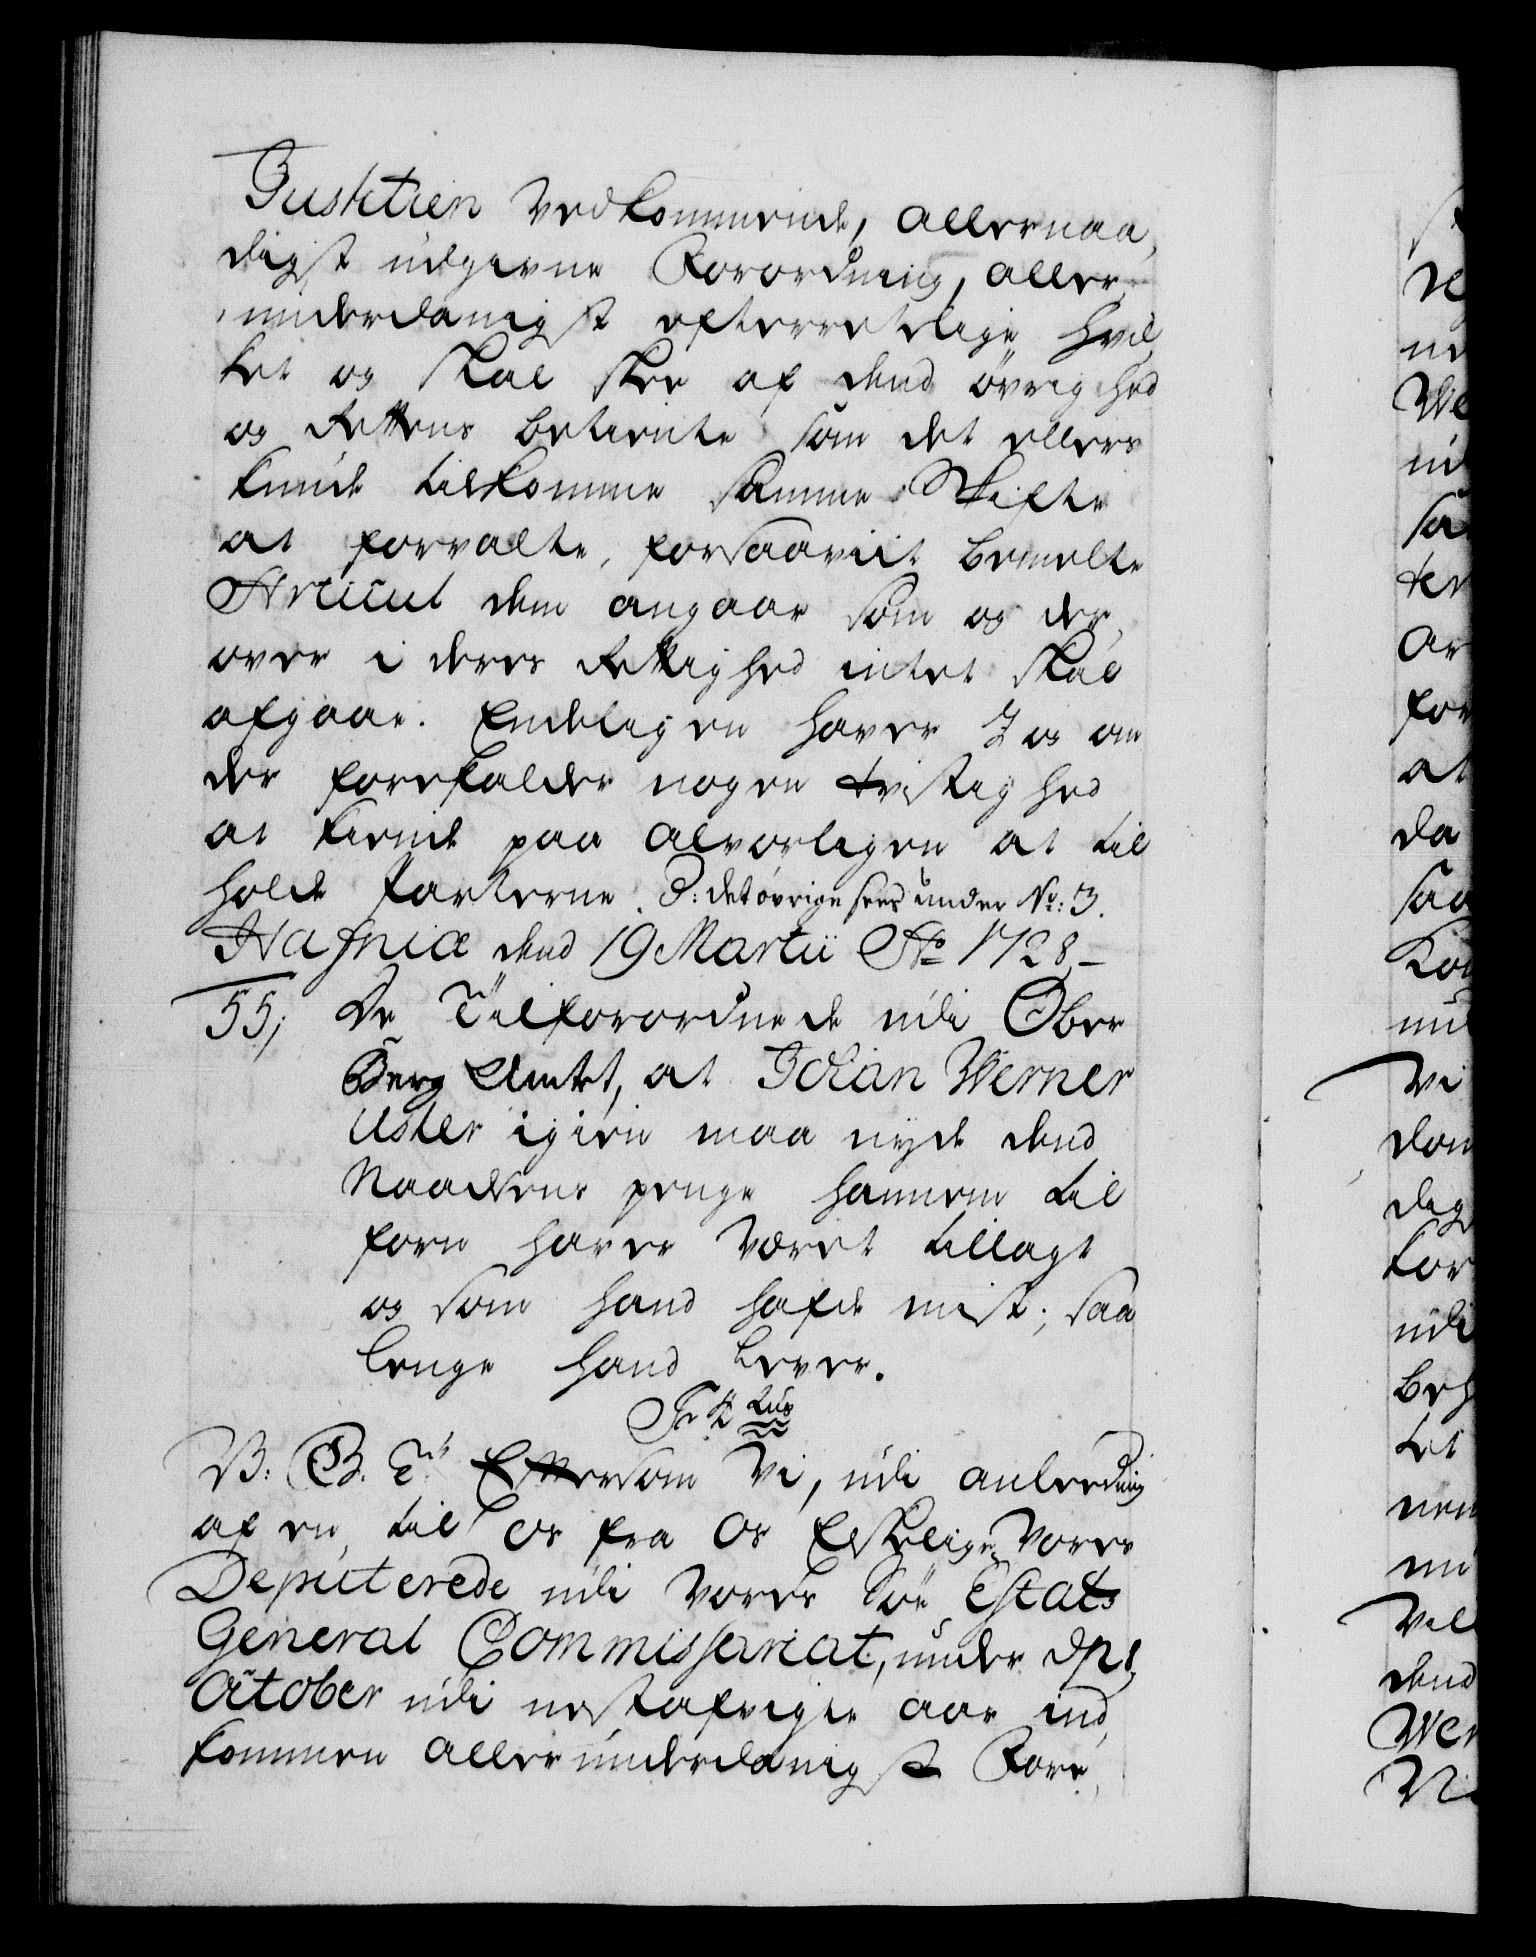 Justitien vedkommende, allernaa,
digst udgivne Forordning, aller,
underdanigst efterretlige, hvil,
ket og skal skee af dend øvrighed
og Rettens betiente som det ellers
kunde tilkomme samme Skifte
at forvalte, forsaaviit bemelte
Articul dem angaar som og der,
over i deres Rettighed intet skal
afgaae. Endeligen haver I os om
der forefalder nogen tvistighed
at kiende paa alvorligen at til
holde Parterne. P: det øvrige sees under No: 3.
Hafniæ dend 19 Martii Ao 1728
55, De Tilforordnede udi Ober
Berg Amtet, at Johan Werner
Uster igien maa nyde dend
Naadsens penge hannem til
forn haver været tillagt
og som hand hafde mist, saa
lenge hand lever.
Fr 4tus
V. G. T. Eftersom Vi, udi anledning
af en, til os fra Os Elskelige Vores
Deputerede udi Vores Søe Estats
General Commissariat, under
October udi nestafvigte aar ind,
kommen allerunderdanigst Fore,